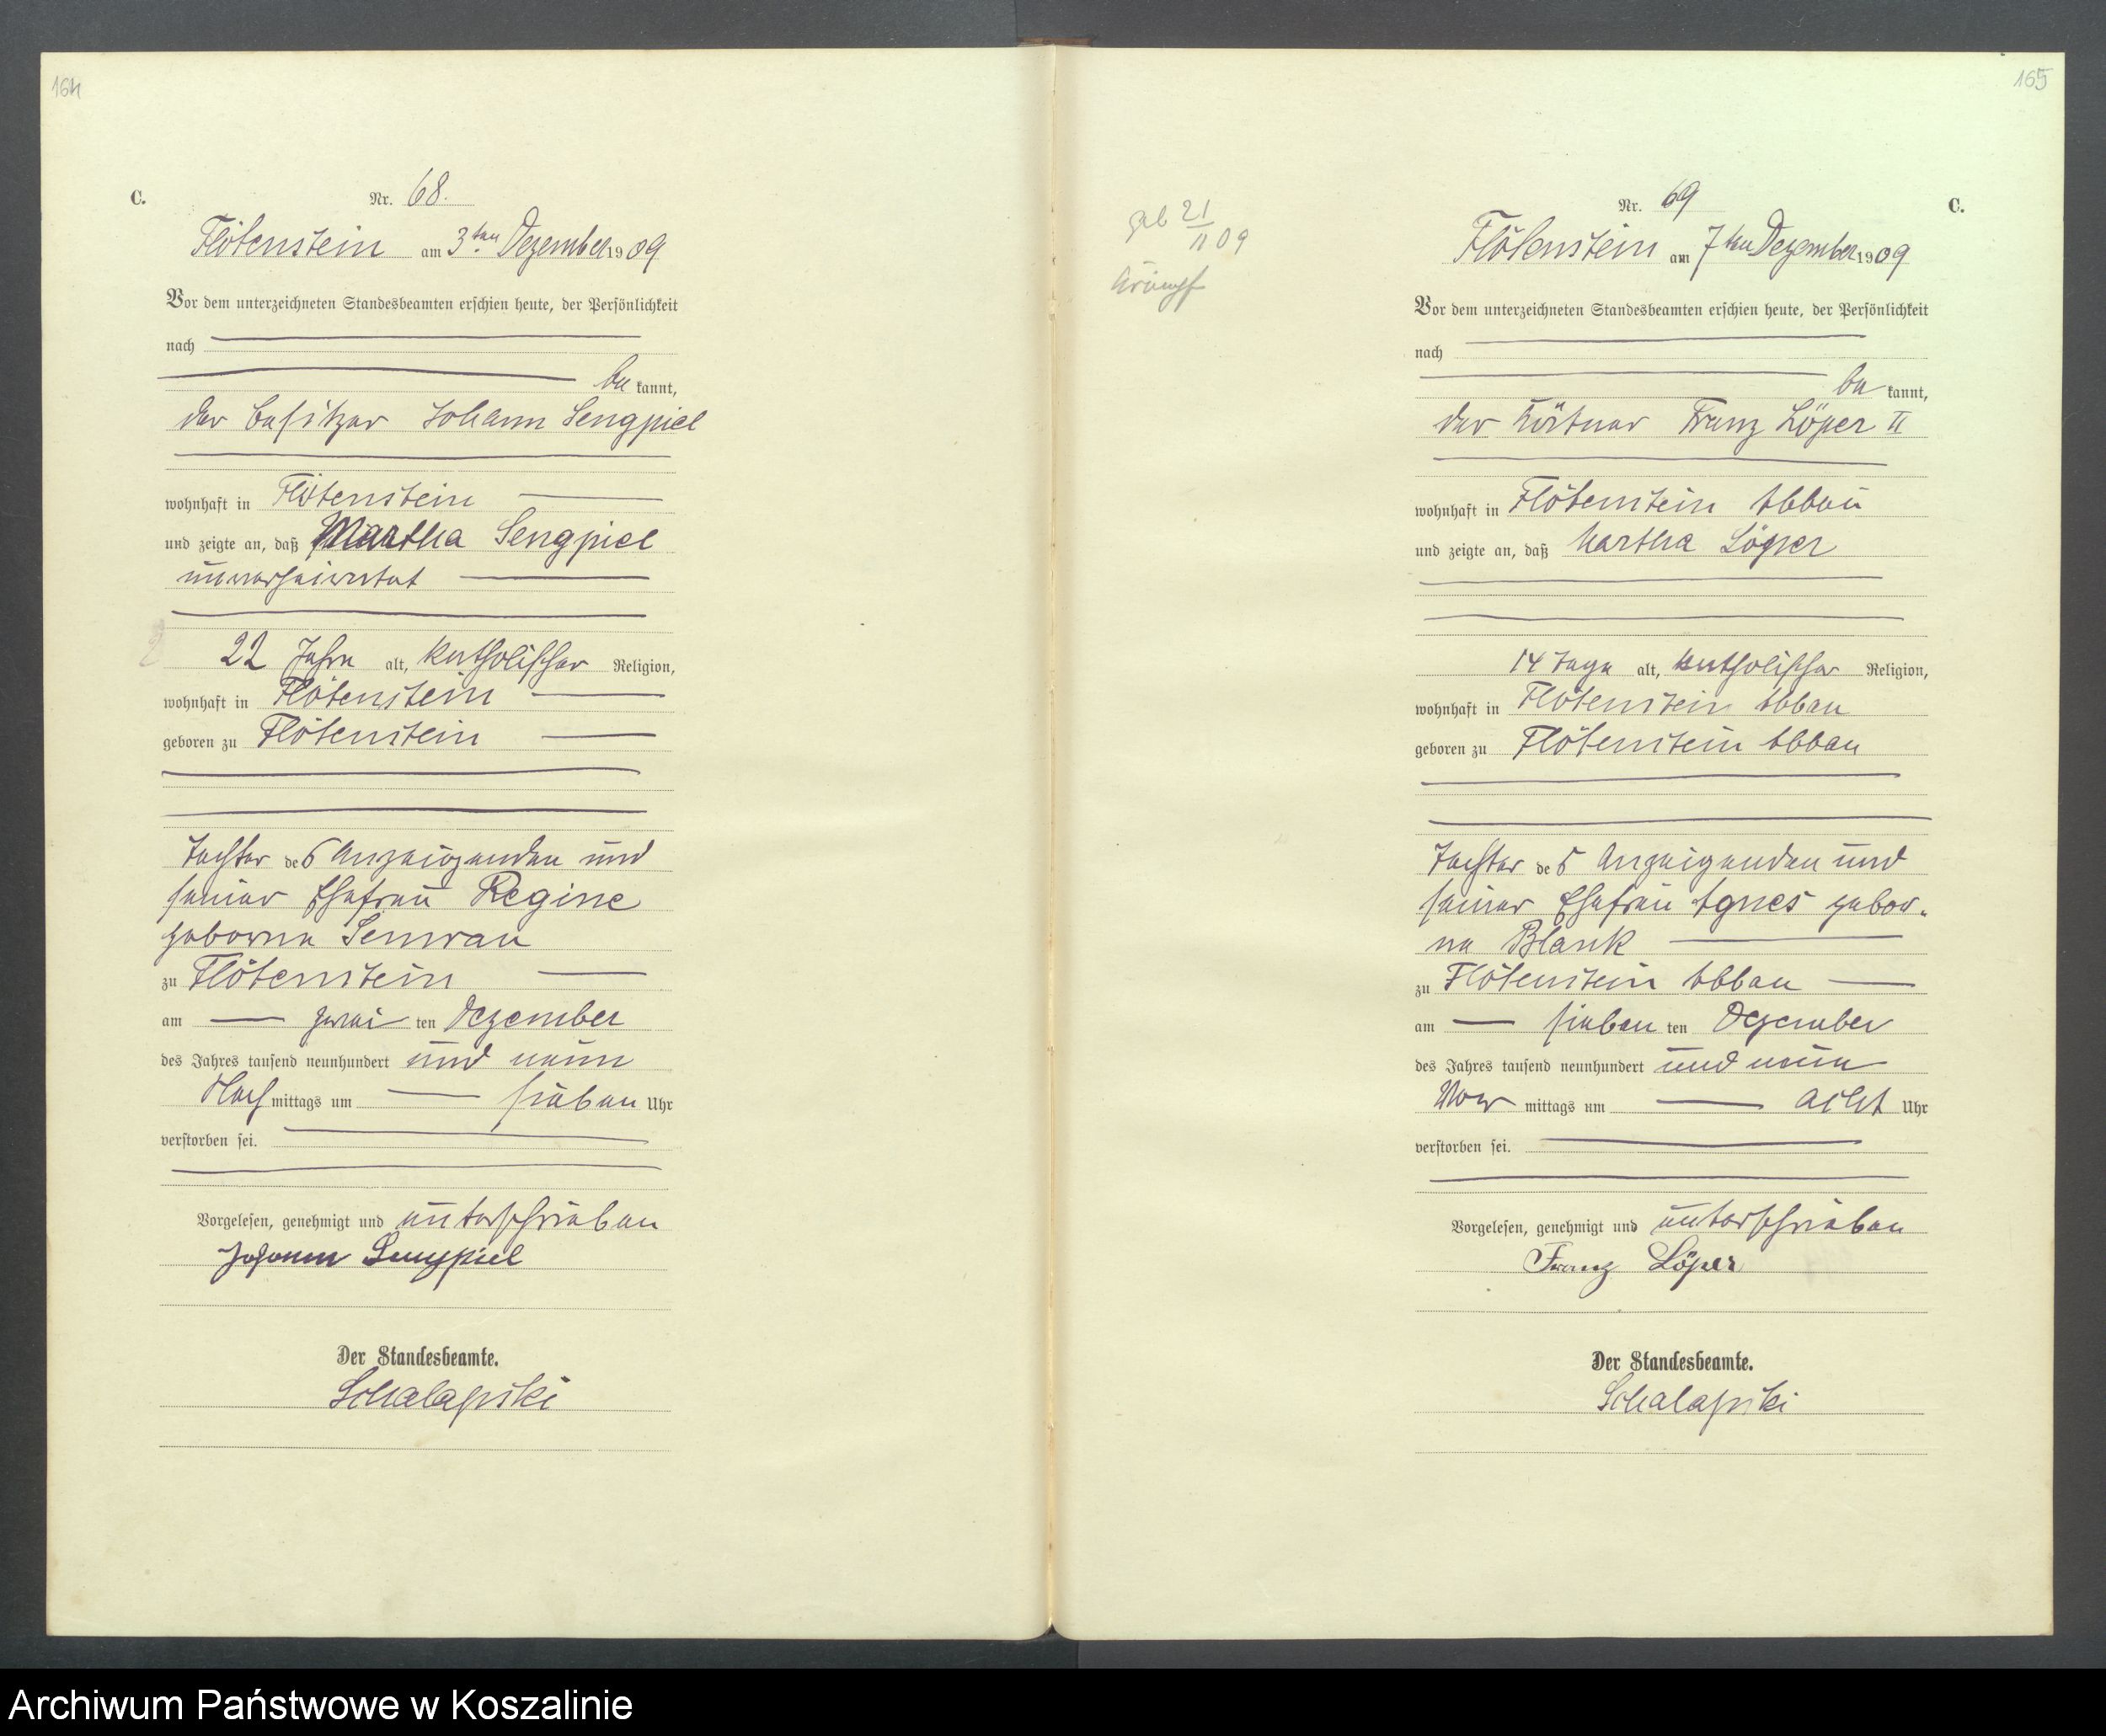 164
C.
Nr. 68.
Flötenstein am 3ten Dezember 1909
Vor dem unterzeichneten Standesbeamten erschien heute, der Persönlichkeit
nach
be kannt,
der Besitzer Johann Sengpiel
wohnhaft in Flötenstein
und zeigte an, daß Martha Sengpiel
unverheiratet
22 Jahre alt, katholischer Religion,
wohnhaft in Flötenstein
geboren zu Flötenstein
Tochter des Anzeigenden und
seiner Ehefrau Regine
geborne Semrau
zu Flötenstein
am zwei ten Dezember
des Jahres tausend neunhundert und neun
Nach mittags um sieben Uhr
verstorben sei.
Vorgelesen, genehmigt und unterschrieben
Johann Sengpiel
Der Standesbeamte.
Schalapski
165
geb 21/11 09
Krämpf
Nr. 69
C.
Flötenstein am 7ten Dezember 1909
Vor dem unterzeichneten Standesbeamten erschien heute, der Persönlichkeit
nach
be kannt,
der Franz Löper II
wohnhaft in Flötenstein Abbau
und zeigte an, daß Martha Löper
14 Tage alt, katholischer Religion,
wohnhaft in Flötenstein Abbau
geboren zu Flötenstein Abbau
Tochter des Anzeigenden und
seiner Ehefrau Agnes gebor-
ne Blank
zu Flötenstein Abbau
am sieben ten Dezember
des Jahres tausend neunhundert und neun
Vor mittags um acht Uhr
verstorben sei.
Vorgelesen, genehmigt und unterschrieben
Franz Löper
Der Standesbeamte.
Schalapski
Archiwum Państwowe w Koszalinie